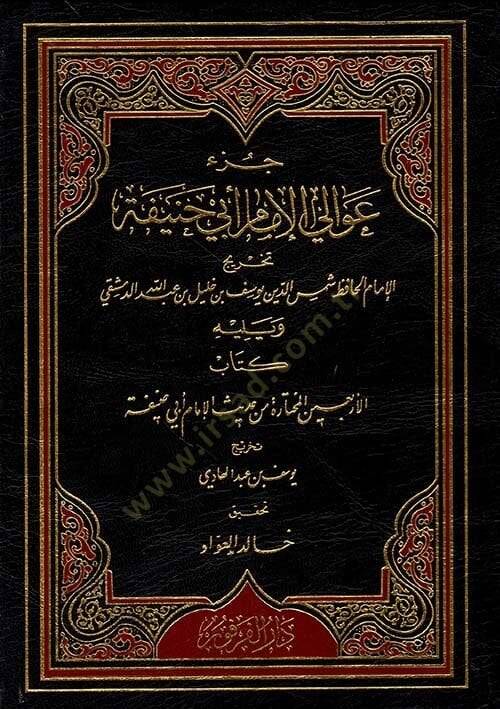 جزء
عوالي الإمام أبي حنيفة
تخريج
الإمام الحافظ شمس الدين يوسف بن خليل بن عبد الله الدمشقي
ويليه
كتاب
الأربعين المختارة من حديث الإمام أبي حنيفة
تخريج
يوسف بن عبد الهادي
تحقيق
خالد العواد
دار الفرفور
www.irsad.com.tr